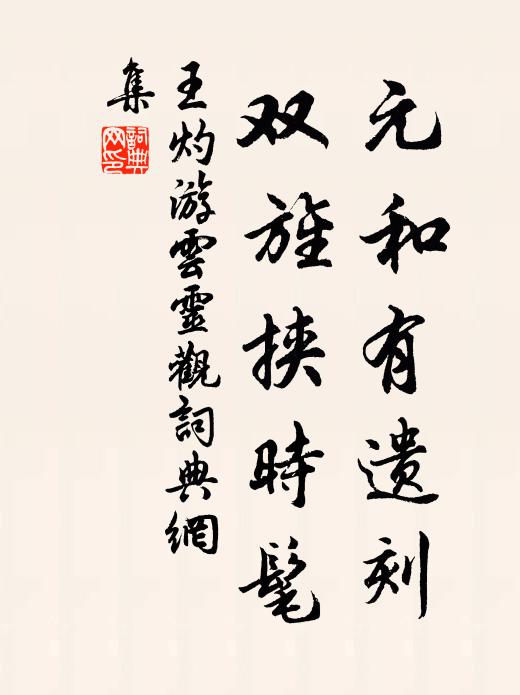 元和有遗刻
双旌挟時髦
王灼游雲靈觀詞典網
集
詞典网印